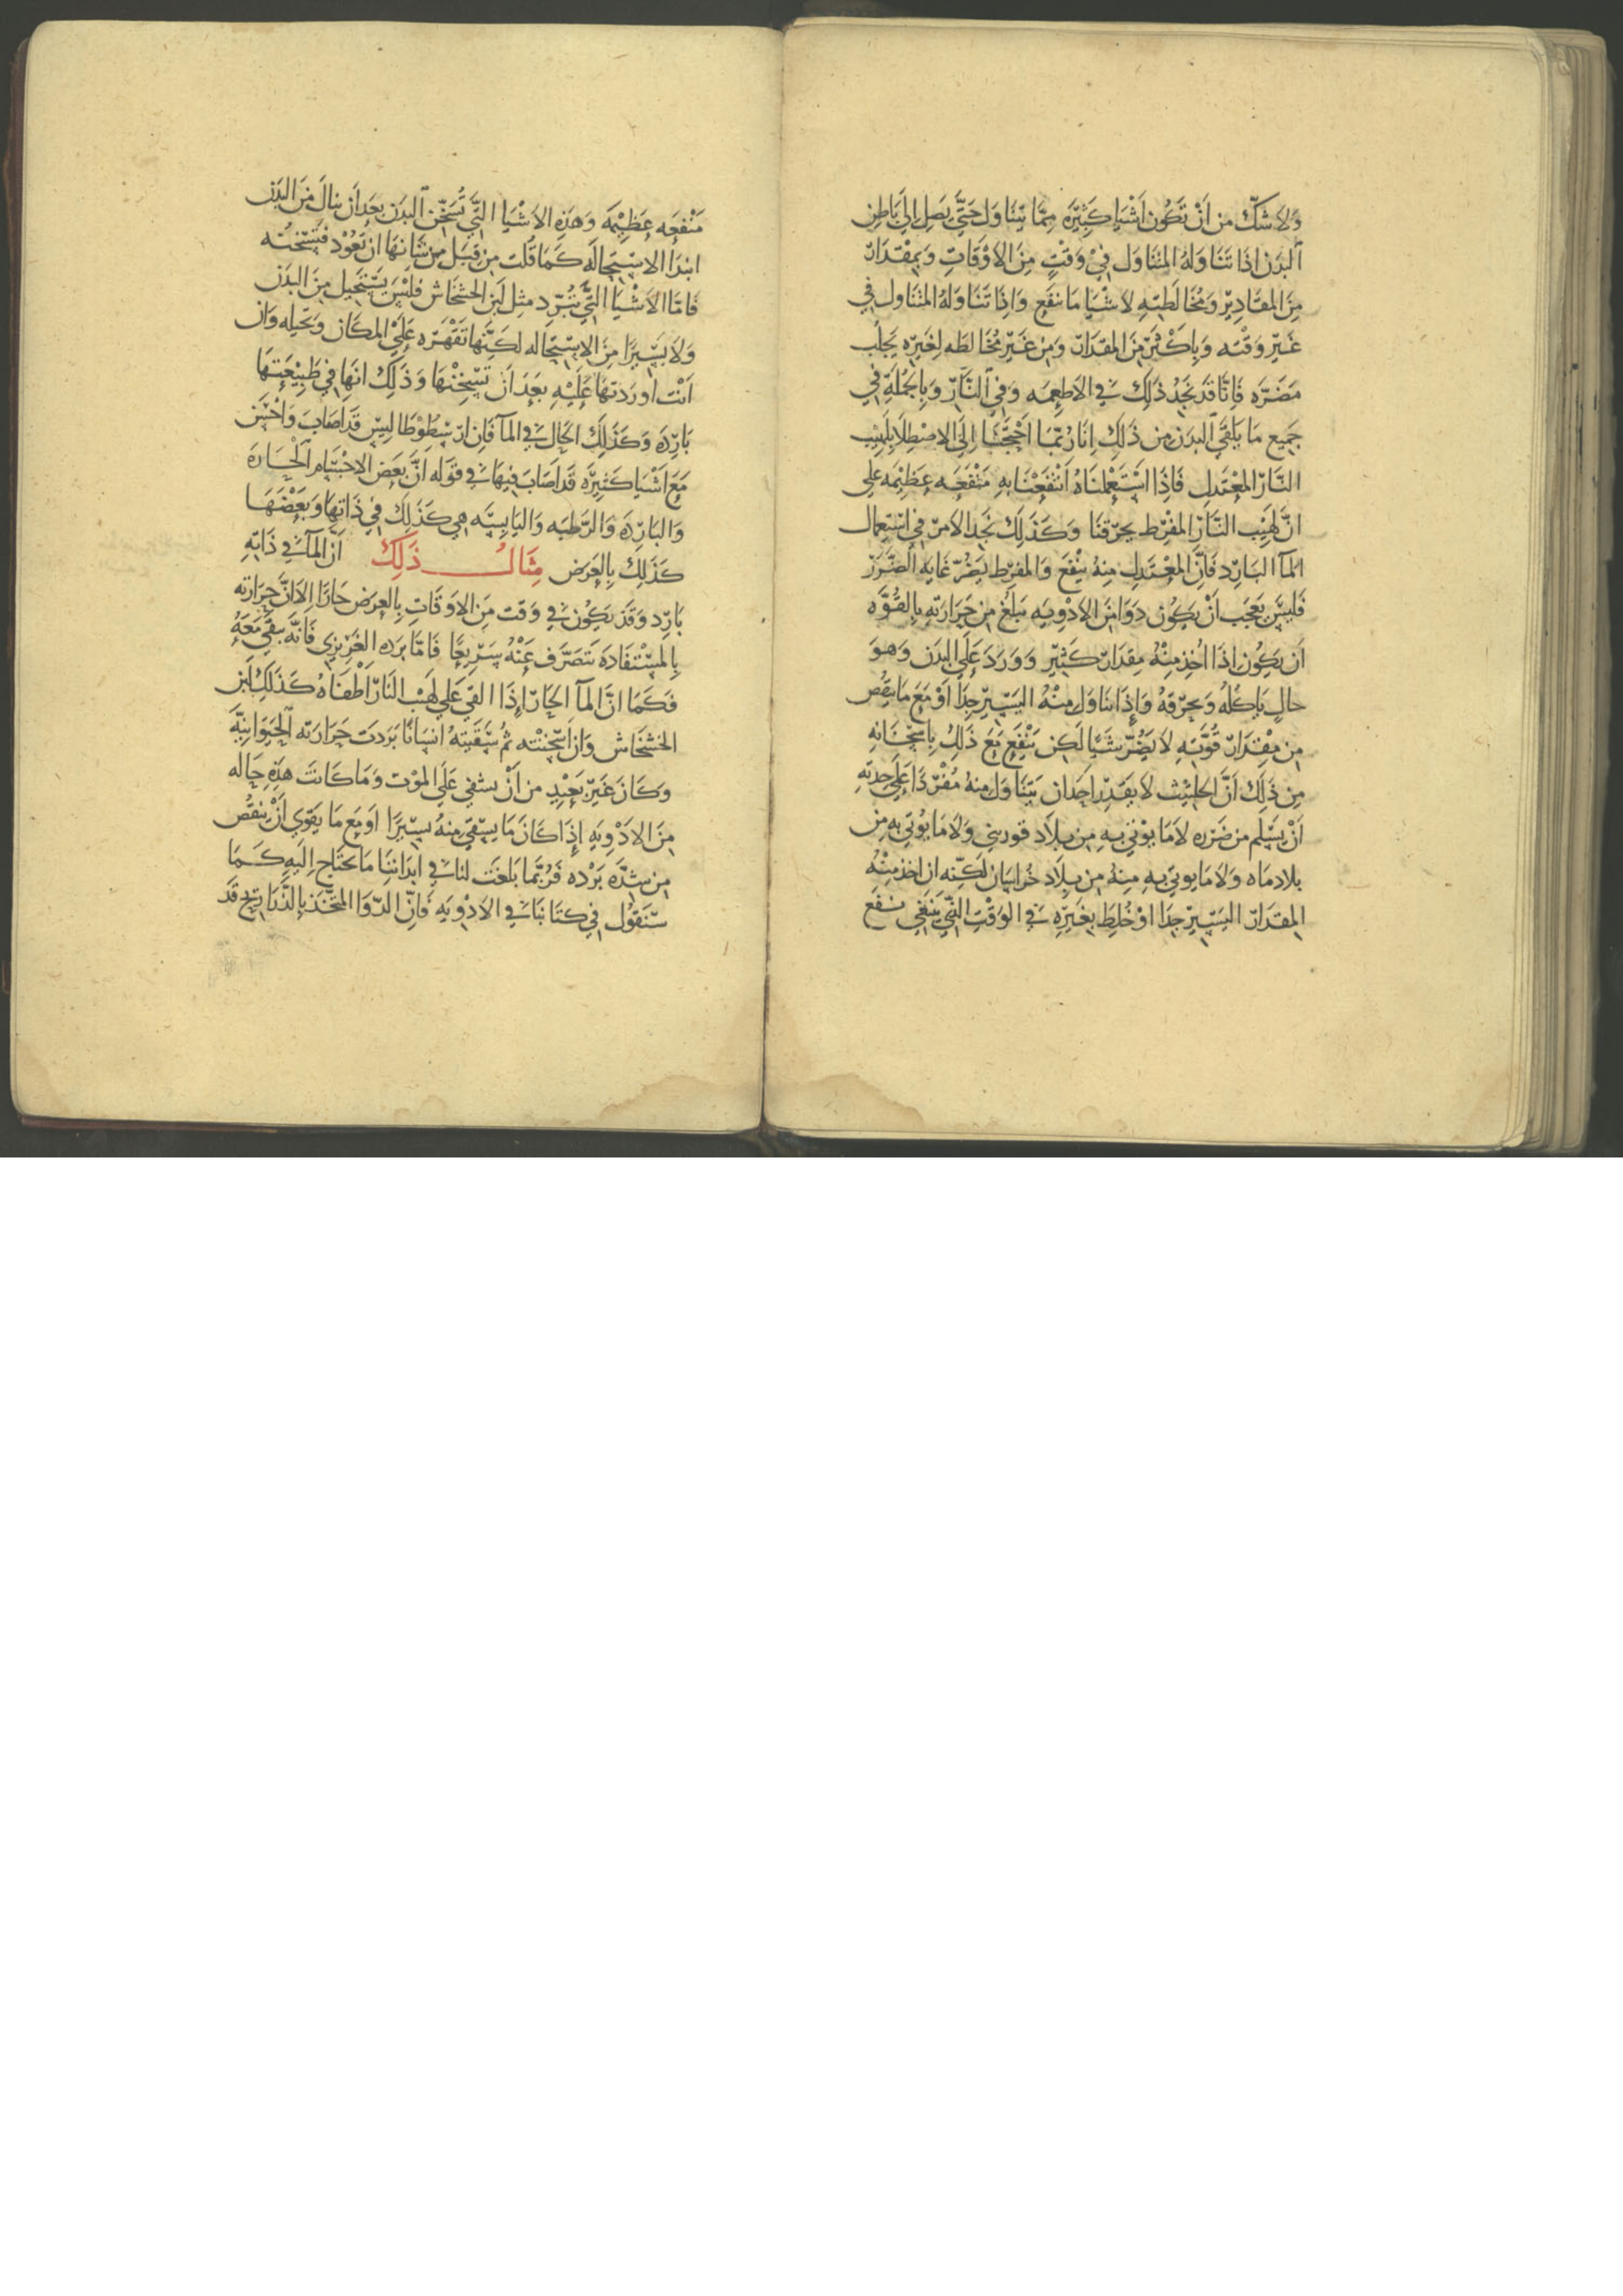 وَلَا شَكّ من اَنْ تَكُون اَشْيَا كَثِيْرَه مِمَّا يُتَنَاوَل حَتَّي يَصِل اِلي بَاطِن
البَدَن اذَا تَنَاوَلهُ المُتَنَاوِل فِيْ وَقتٍ مِنَ الاَوْقَاتِ وَبِمِقْدَار
مِنَ المقَادِيْر وَمُخَالَطَتِهِ لاَشْيَا مَا نَفَع وَاِذَا تَنَاوَلهُ المُتَنَاوِل في
غَيْر وَقْتِه وَبِاَكْثَر مِنَ المِقدَار وَمِن غَيْر مُخَالطَه لِغَيْرِه يَجلُب
مَضَرَّه فَاِنَّا قَد نَجِدُ ذلِكَ في الاَطعِمَه وَفي النَّار وَبِالجُمْلَةِ في
جَمِيع مَا يَلقَي البدَن مِن ذَلِكَ اِنَا رُبَّمَا احْتَجْنَا اِلَي الاِصْطِلَا بِلَهِيْب
النَّار المعْتَدِل فَاِذَا اسْتَعْملنَاهُ اَنْتفَعْنَا بِهِ مَنْفَعَه عَظِيْمَه عَلي
انَّ لَهِيْب النَّار المفْرِط يحرقنَا وَكَذَلِكَ نَجِد الاَمر فِي اسْتِعمال
المآ البَارِد فَاِنَّ المعْتَدِل مِنهُ يَنْفَع وَالمفرِط يَضُرّ غَايه الضَّرَر
فَليْسَ بعَجَب اَنْ يَكُوْن دَوَا مِنَ الاَدْوِيَه مَبلَغ مِن حَرَارَتِهِ بِالقُوَّه
اَن يَكُون اذَا اُخِذ مِنْهُ مِقدَار كَثِيْر وَوَرَدَ عَلَي البَدَن وَهوَ
خالٍ يَاكلُه وَيحرقهُ وَاِذَا تنَاوَل مِنْهُ اليَسِيْر جِدًا اَوْ مَعَ مَا يَنقُص
مِن مِقْدَار قُوَّتِهِ لَا يَضُرّ شَيًا لَكِن يَنْفَع مَعَ ذَلِكَ بِاسْخَانِهِ
مِن ذَلِكَ اَنَّ الحلتِيْت لَا يَقدِر احَد ان يَتَنَاوَل مِنهُ مُفْرَدًا عَلَي حِدَتِهِ
اَنْ يَسْلَم مِن ضَرَره لَا مَا يُوْتي بِهِ مِن بِلَاد قوريني وَلَا مَا يُوتي بِهِ مِن
بلاد مَاه وَلَا مَا يوتي بِهِ مِنهُ مِن بِلَاد خُرَاسَان لَكِنّه ان اخِذ مِنْهُ
المِقدَار اليَسِيْر جِدًا اوْ خُلِطَ بِغَيْرِهِ في الوَقْتِ الَّتِي يَنْبَغِي نفَع
مَنْفعَه عَظِيْمَه وَهَذِهِ الاَشْيَا الَّتِي تُسَخِّن البدَن بعدَ اَن ينالَ مِنَ البَدَن
ابتدَا الاسْتِحَالَه كَمَا قُلت مِن قِبَل مِن شَانِهَا ان تَعُوْد فَتُسَخِّنُه
فَامَّا الاَشْيَا الَّتِي تُبَرِّد مثِل لَبَن الخشْخَاش فَليْسَ يَسْتَحِيل مِنَ البدَن
وَلَا يَسِيْرًا مِنَ الاِسْتِحَاله لكنَّهَا تَقْهَرُه عَلَيْ المكَان وَتحيله وَان
اَنْت اَورَدتهَا عَلَيْهِ بعدَ اَنْ تسْخِنْهَا وَذَلِكَ انَهَا فِي طَبِيْعَتهَا
بَارِدَه وَكَذَلِكَ الحَال في المآ فَاِن ارِسْطُوطَالِيس قَد اَصَابَ وَاحْسَن
مَعَ اَشْيَا كَثِيْرَه قَد اَصَابَ فِيهَا في قَوله اَنَّ بَعْض الاجْسَام الْحَارَه
وَالبَارِدَه وَالرَّطبَه وَاليَابِسَه هِي كَذَلِكَ فِي ذَاتِهَا وَبَعْضَهَا
كَذَلِكَ بِالعَرَض مِثَال ذَلِكَ اَنَّ المآ في ذَاتِهِ
بَارِد وَقَد يَكُوْن في وَقت مِنَ الاَوقَاتِ بِالعرَض حَارًا اِلاَ انَّ حَرَارَته
بِالمسْتفَادَه تَتصَرَّف عَنْهُ سَرِيعًا فَامَّا بَرَده الغَرِيْزِي فَانَّه يبقَي مَعَهُ
فَكَمَا انَّ المآ الحَار اِذَا القي عَلي لَهِيْب النَار اَطْفَاهُ كَذَلِكَ لَبَن
الخشْخَاش وَان اَسْخَنْته ثُم سَقَيتهُ انسَانًا بَرَدت حَرَارَته الحيَوَانِيَّه
وكَانَ غَيْر بَعِيْدٍ من اَنْ يشفي عَلَي الموْت وَمَا كَانتَ هَذِهِ حَاله
مِنَ الادْوِيَهِ اِذَا كَانَ مَا يسْقَي مِنهُ يَسِيْرًا اَوَ مَع مَا يَقْوي اَنْ يَنقُص
مِن شِدَّه بَرْدِه فَرُبَّما بَلَغَت لنا في ابدَانِنَا مَا نَحتَاج اِلَيهِ كَمَا
سَنَقُوْل فِي كتَابنَا في الاَدْوِيَه فَاِنّ الدّوَا المتّخَذ بِالذَّرَارِيْح قَد